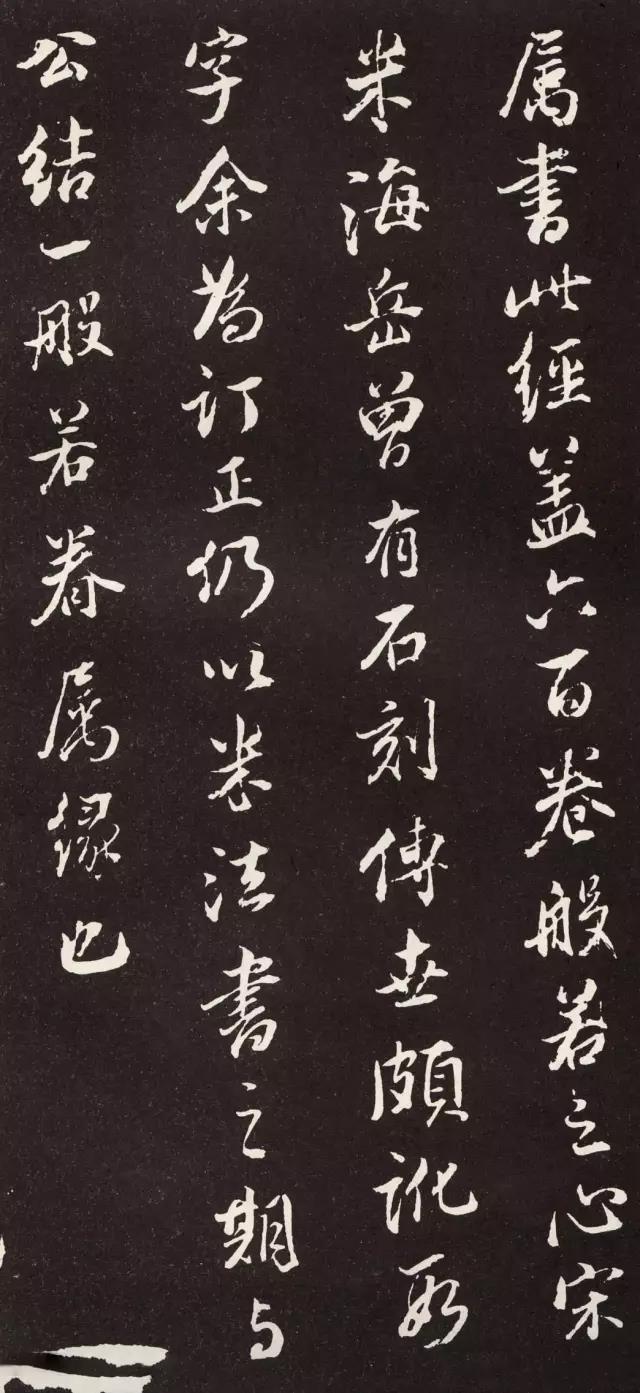 属書此經盖六百卷般若之心宋
米海岳曾有石刻傳世頗訛数
字余為訂正仍以米法書之期与
公結一般若眷属緣也